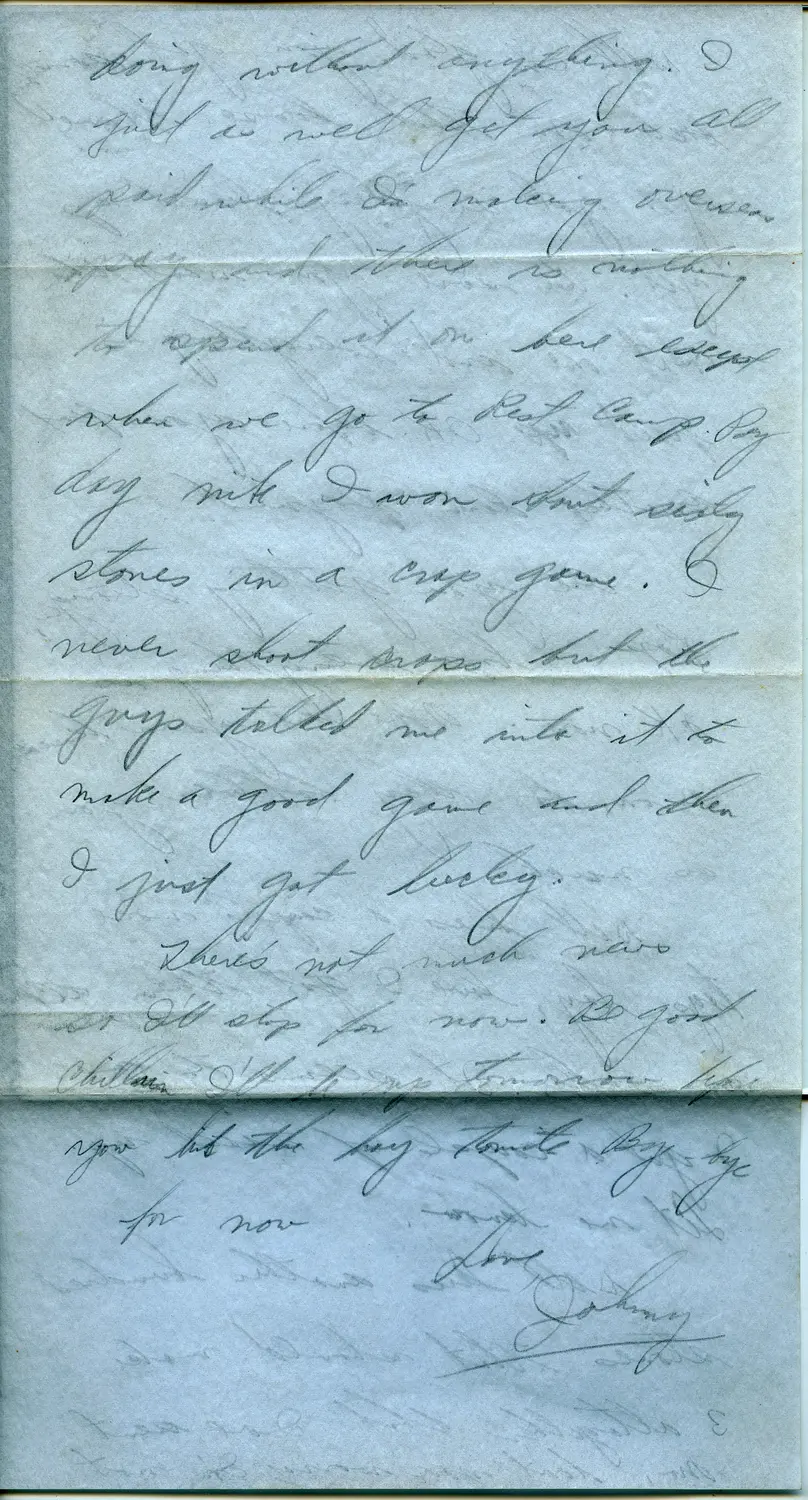 doing without anything. I
just as well get you all
paid while I'm making overseas
pay and there is nothing
to spend it on here except
when we go to Rest Camp. Pay
day nite I won bout sixty
stones in a crap game. I
never shoot craps but the
guys talked me into it to
make a good game and then
I just got lucky.
There's not much news
so I'll stop for now. Be good
I'll be up tomorrow before
you hit the hay tonite By-bye
for now
Love
Johnny